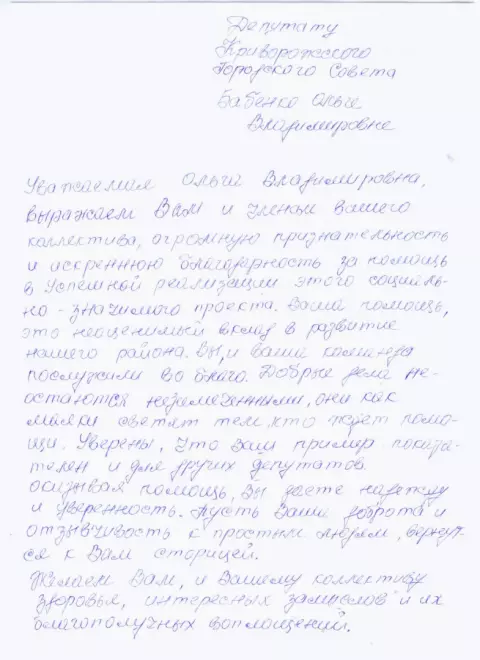 Депутату
Криворожского
Городского Совета
Бабенко Ольге
Владимировне
Уважаемая Ольга Владимировна,
выражаем Вам и членам вашего
коллектива, огромную признательность
и искреннюю благодарность за помощь
в успешной реализации этого социаль-
но-значимого проекта. Ваша помощь,
это неоценимый вклад в развитие
нашего района. Вы, и ваша команда
послужили во благо. Добрые дела не-
остаются незамеченными, они как
маяки светят тем, кто ждет помо-
щи. Уверены, что Ваш пример показа-
телен и для других депутатов.
Оказывая помощь, Вы даете надежду
и уверенность. Пусть Ваши доброта и
отзывчивость к простым людям, вернут-
ся к Вам сторицей.
Желаем Вам, и Вашему коллективу
здоровья, интересных замыслов и их
благополучных воплощений.